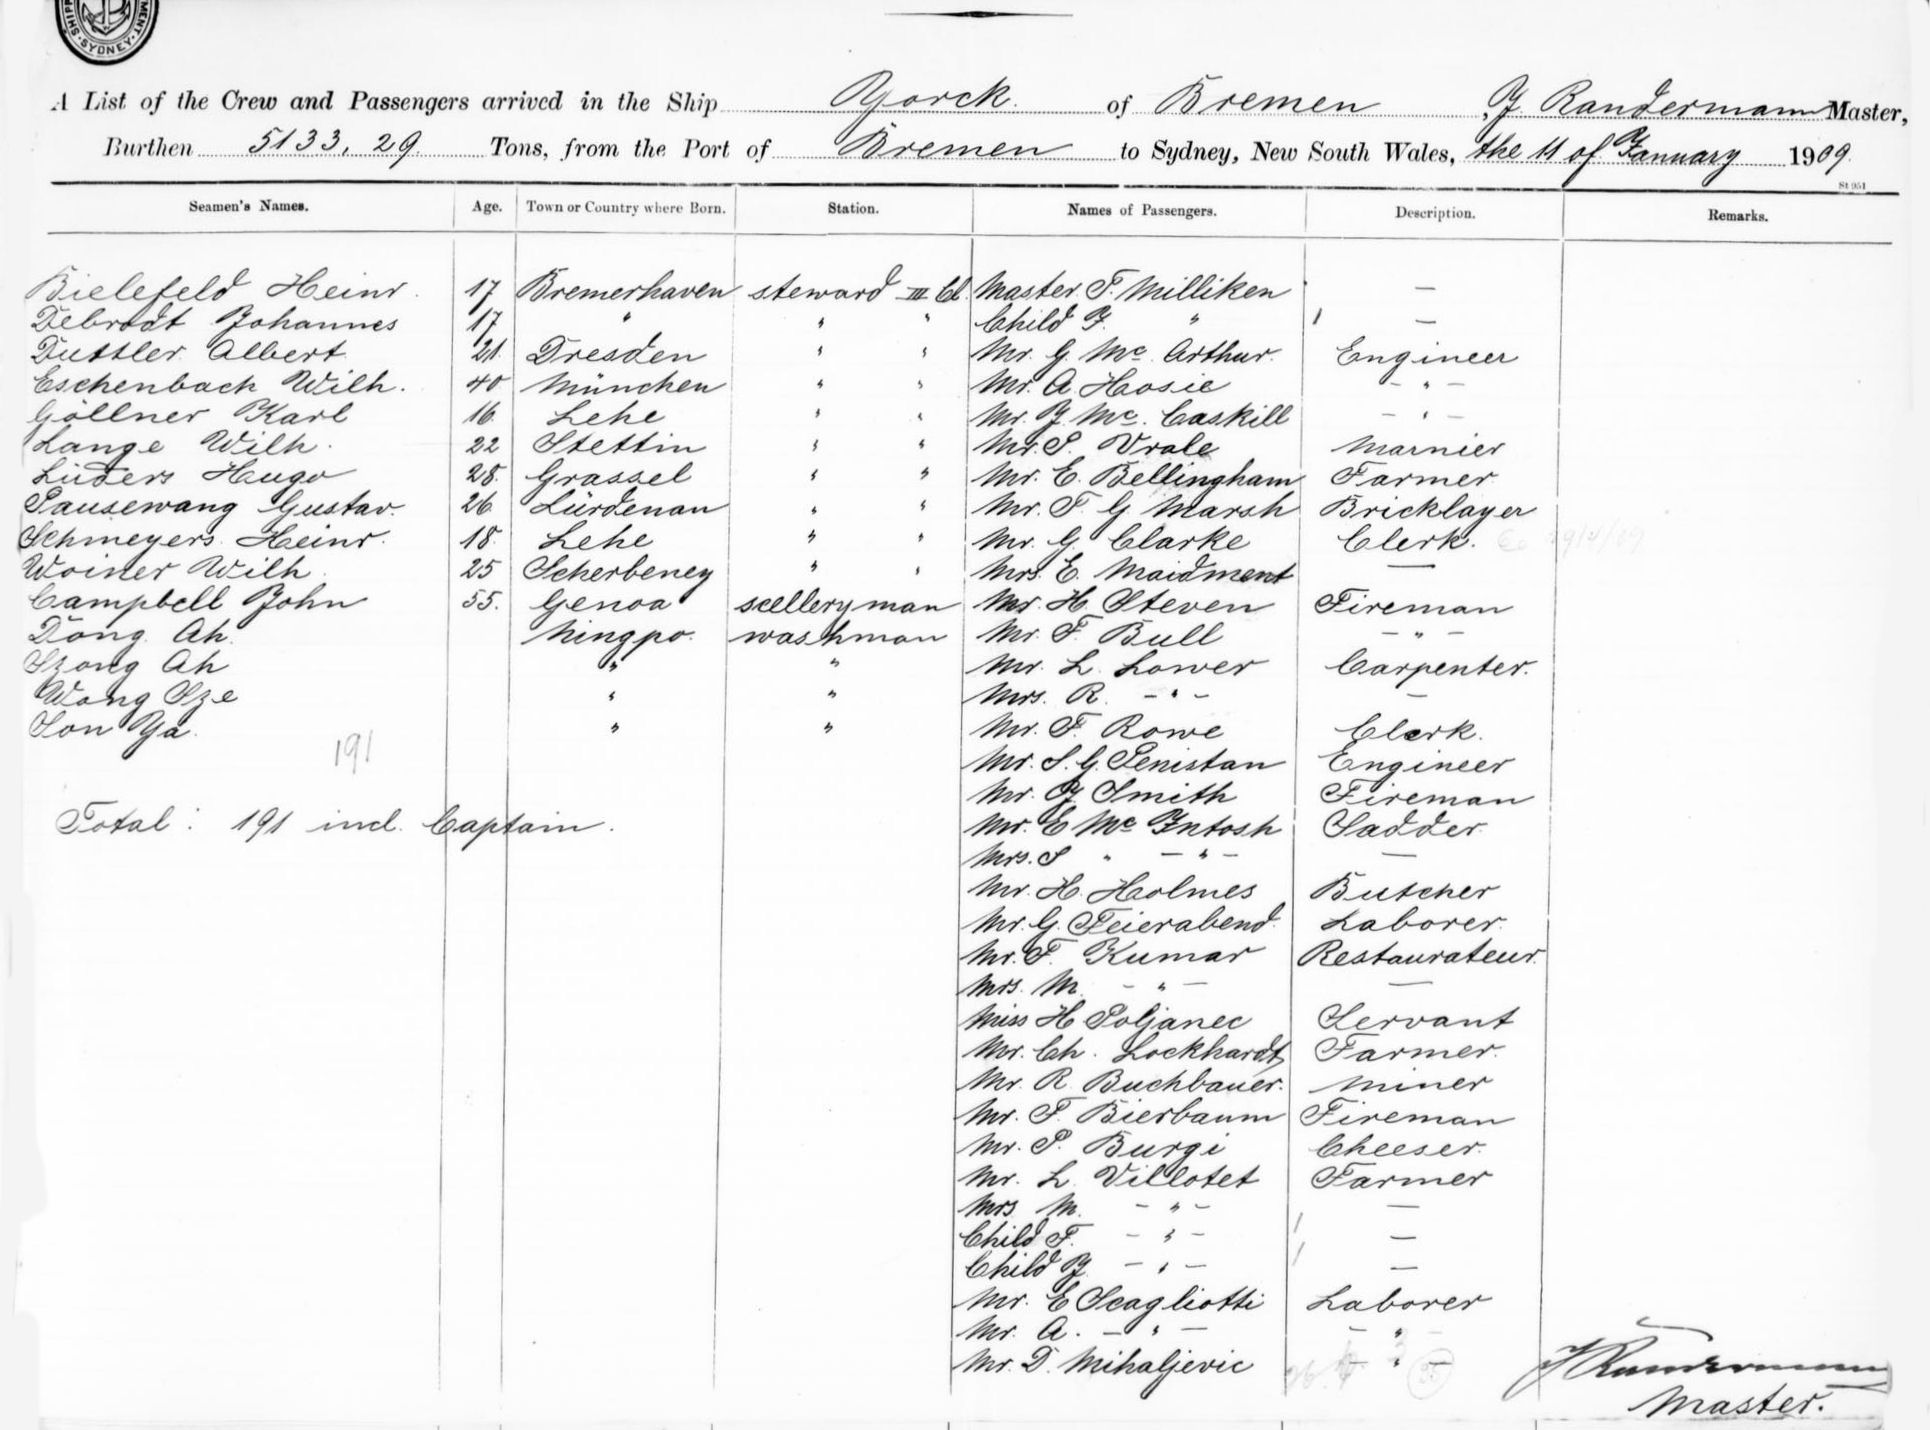 SHIPP MENT · SYDNEY ·
A List of the Crew and Passengers arrived in the Ship Yorck. of Bremen, J Randermann Master,
Burthen 5133,29. Tons, from the Port of Bremen to Sydney, New South Wales, the 11 of January 1909.
St 951
Seamen's Names. Age. Town or Country where Born. Station. Names of Passengers. Description. Remarks.
Bielefeld Heinr. 17 Bremerhaven steward III Cl. Master T. Milliken —
Debrodt Johannes 17 " " " Child J. " 1 —
Duttler Albert 21. Dresden " " Mr. G. Mc. Arthur. Engineer
Eschenbach Wilh. 40 München " " Mr. A. Hosie — " —
Göllner Karl 16. Lehe " " Mr. J. Mc. Caskill — " —
Lange Wilh. 22 Stettin " " Mr. P. Vrale Marnier
Lüders Hugo 28. Grassel " " Mr. E. Bellingham Farmer
Pausewang Gustav. 26 Lürdenau " " Mr. T. G. Marsh Bricklayer
Schmeyers Heinr. 18. Lehe " " Mr. G. Clarke Clerk.
Woiner Wilh. 25 Scherbeney " " Mrs. E. Maidment —
Campbell John 55. Genoa scelleryman Mr. H. Steven Fireman
Dong. Ah. Ningpo. washman Mr. F. Bull — " —
Szong Ah " " Mr. L. Lower Carpenter.
Wong Sze " " Mrs. R. — " — —
Son Ya. " " Mr. F. Rowe Clerk.
191
Mr. S. G. Penistan Engineer
Mr. J. Smith Fireman
Total: 191 incl. Captain.
Mr. E Mc Intosh Sadder.
Mrs. S " — " — —
Mr. H. Holmes Butcher
Mr. G. Feierabend. Laborer.
Mr. F. Kumar Restaurateur.
Mrs. M. — " — —
Miss H Poljanec Servant
Mr. Ch. Lockhardt, Farmer.
Mr. R. Buchbauer. Miner
Mr. F. Bierbaum Fireman
Mr. P. Burgi Cheeser.
Mr. L. Villotet Farmer
Mrs M. — " — —
Child F. — " — 1 —
Child J. — " — 1 —
Mr. E Scagliotti Laborer
Mr. A. — " — — " —
Mr. D. Mihaljevic — " —
J Randermann
Master.